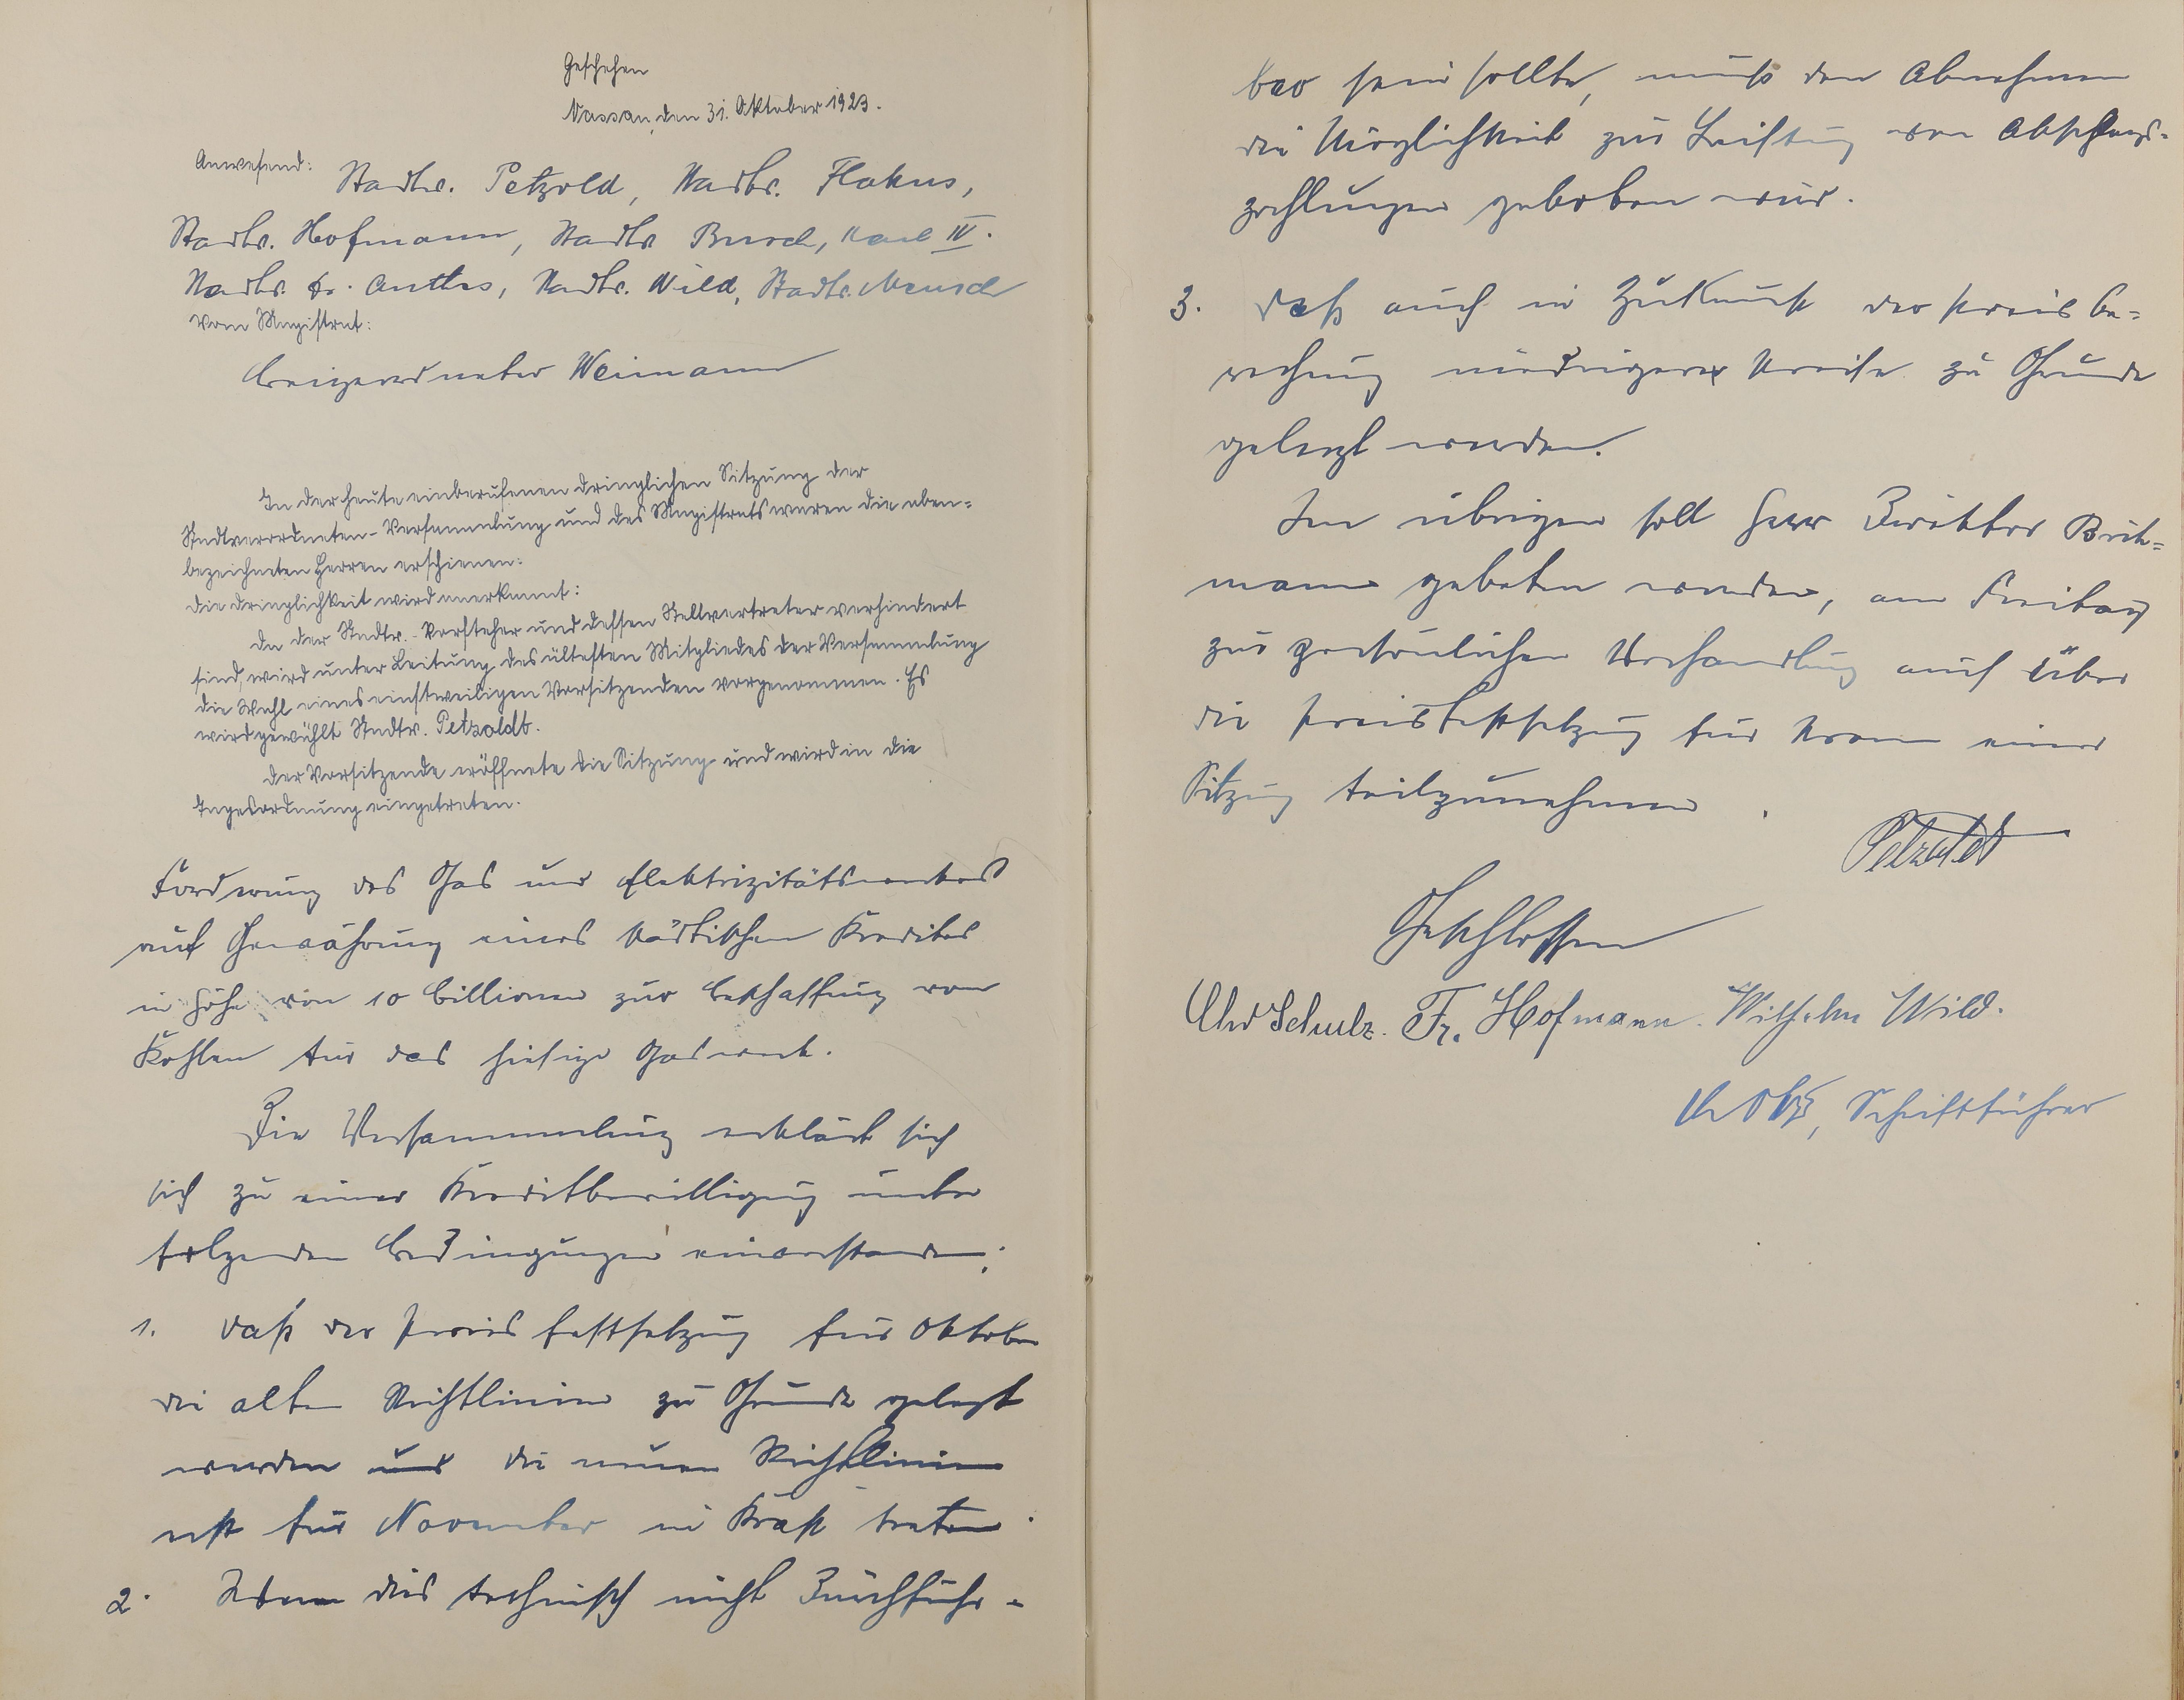 Geschehen
Nassau, den 31. Oktober 1923.
Anwesend: Stadtv. Petzold, Stadtv. Flakus,
Stadtv. Hofmann, Stadtv. Busch, Karl IV.
Stadtv. Dr. Anthes, Stadtv. Wild, Stadtv. Mensch
Vom Magistrat:
Beigeordneter Weimann
In der heute einberufenen dringlichen Sitzung der
Stadtverordneten-Versammlung und des Magistrats waren die oben=
bezeichneten Herren erschienen:
Die Dringlichkeit wird anerkannt:
Da der Stadtv.-Vorsteher und dessen Stellvertreter verhindert
sind, wird unter Leitung des ältesten Mitgliedes der Versammlung
die Wahl eines einstweiligen Vorsitzenden vorgenommen. Es
wird gewählt Stadtv. Petzoldt.
Der Vorsitzende eröffnete die Sitzung und wird in die
Tagesordnung eingetreten.
Forderung des Gas und Elektrizitätswerkes
auf Gewährung eines städtischen Kredites
in Höhe von 10 Billionen zur Beschaffung von
Kohlen für das hiesige Gaswerk.
Die Versammlung erklärt sich
sich zu einer Kreditbewilligung unter
folgenden Bedingungen einverstanden:
1. daß der Preisfestsetzung für Oktober
die alten Richtlinien zu Grunde gelegt
werden und die neuen Richtlinien
erst für November in Kraft treten.
2. Wenn dies technisch nicht durchführ-
bar sein sollte, muß den Abnehmern
die Möglichkeit zur Leistung von Abschlags-
zahlungen geboten werd.
3. daß auch in Zukunft der Preisbe=
rechnung niedrigere Preise zu Grunde
gelegt werden.
Im übrigen soll Herr Direktor Brik=
mann gebeten werden, am Freitag
zur persönlichen Verhandlung auch über
die Preisfestsetzung für Strom einer
Sitzung teilzunehmen.
Petzoldt
Geschlossen
Schulz. Fr. Hofmann. Wilhelm Wild.
Schriftführer